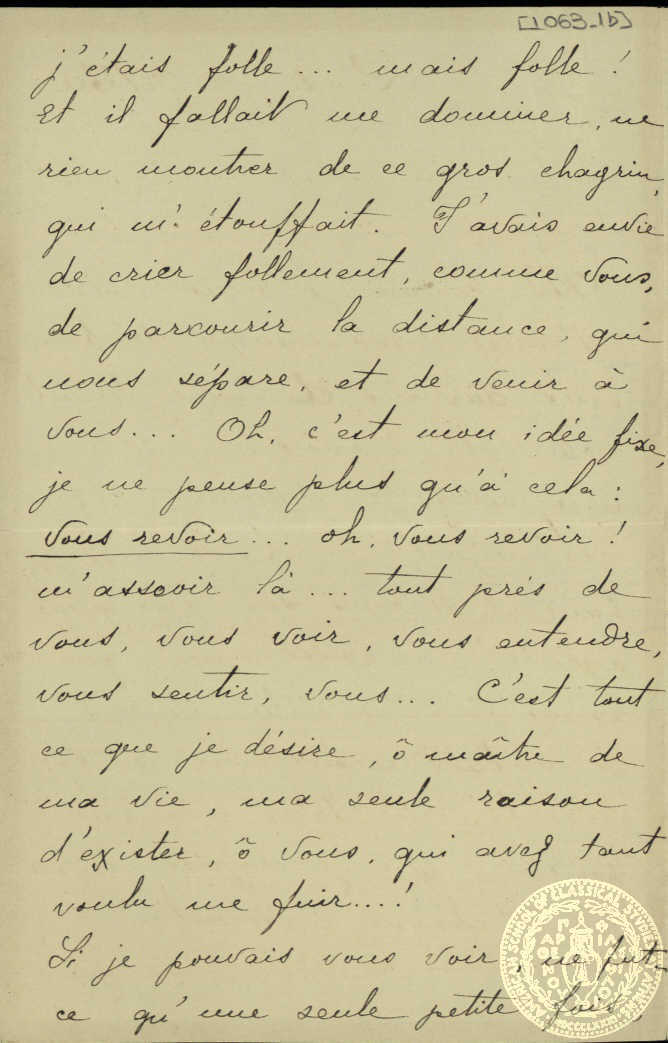 [1063_1b]
j'étais folle ... mais folle !
Et il fallait me dominer, ne
rien montrer de ce gros chagrin,
qui m'étouffait. J'avais envie
de crier follement, comme vous,
de parcourir la distance, qui
nous sépare, et de venir à
vous... Oh, c'est mon idée fixe,
je ne pense plus qu'à cela :
vous revoir ... oh, vous revoir !
m'assoir là ... tout près de
vous, vous voir, vous entendre,
vous sentir, vous... C'est tout
ce que je désire, ô maître de
ma vie, ma seule raison
d'exister, ô vous, qui avez tant
voulu me fuir...!
Si je pouvais vous voir, ne fut-
ce qu'une seule petite fois,
SCHOOL OF CLASSICAL STUDIES